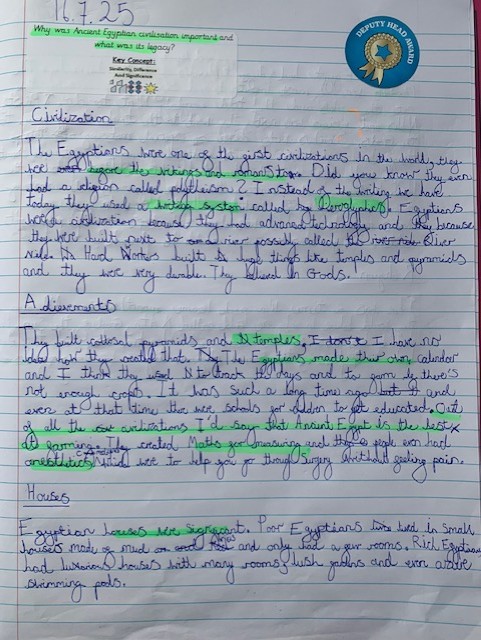 16.7.25
Why was Ancient Egyptian civilisation important and
what was its legacy?
Key Concept:
Similarity, Difference
And Significance
DEPUTY HEAD AWARD
Civilization
The Egyptians were one of the first civilizations in the world, they
were before the vikings and romans too. Did you know they even
had a religion called polytheism? Instead of the writing we have
today they used a writing system called by Hieroglyphics. Egyptians
were a civilization because they had advanced technology and because
they were built next to a river possibly called the River
Nile. As Hard Workers built huge things like temples and pyramids
and they were very durable. They believed in Gods.
Achievements
They built collosal pyramids and temples, I have no
idea how they created that. The Egyptians made their own calendar
and I think they used it to track the days and to farm if there's
not enough crops. It was such a long time ago and
even at that time there were schools for children to get educated. Out
of all the civilizations I'd say that Ancient Egypt is the best
at farming. They created Maths for measuring and the people even had
anesthetics which were to help you go though Surgery without feeling pain.
Houses
Egyptian houses were significant. Poor Egyptians lived in small
houses made of mud and only had a few rooms. Rich Egyptians
had luxurious houses with many rooms, lush gardens and even
swimming pools.